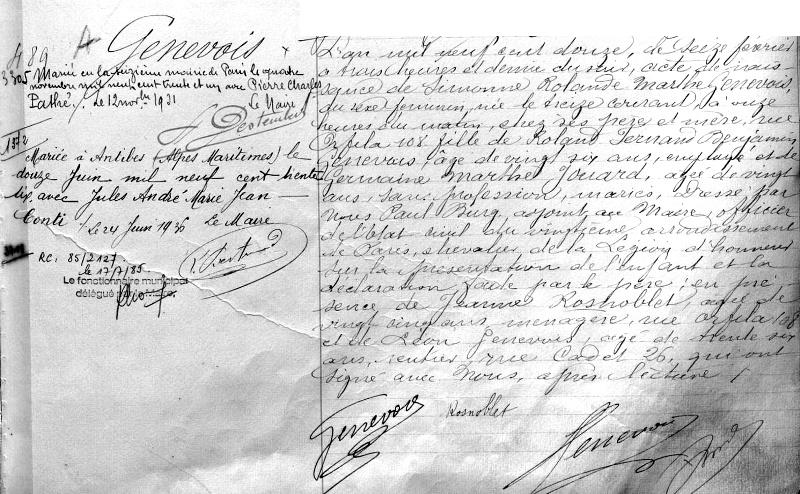 489 A
Genevois
3305 Mariée en la seizième mairie de Paris le quatre
novembre mil neuf cent trente et un avec Pierre Charles
Pathé. Le 12 novbre 1931
Le Maire
1372
Mariée à Antibes (Alpes Maritimes) le
douze Juin mil neuf cent trente
six avec Jules André Marie Jean
Conti / Le 24 Juin 1936 Le Maire
RC. 85/2127
le 17/7/85
Le fonctionnaire municipal
délégué par le Maire,
L'an mil neuf cent douze, le seize février
à trois heures et demie du soir, acte de nais-
sance de Simonne Rolande Marthe Genevois,
du sexe féminin, née le seize courant, à onze
heures du matin, chez ses père et mère, rue
Orfila 108 fille de Roland Fernand Benjamin
Genevois âgé de vingt six ans, employé et de
Germaine Marthe Jouard, âgée de vingt
ans, sans profession, mariés. Dressé par
Nous Paul Burg, adjoint au Maire, officier
de l'Etat civil du vingtième arrondissement
de Paris, chevalier de la Légion d'honneur
sur la présentation de l'enfant et la
déclaration faite par le père; en pré-
sence de Jeanne Rosnoblet, âgée de
vingt cinq ans, ménagère, rue Orfila 108
et de Léon Genevois, âgé de trente six
ans, rentier rue Cadet 26, qui ont
signé avec Nous, après lecture /
Genevois Rosnoblet Genevois